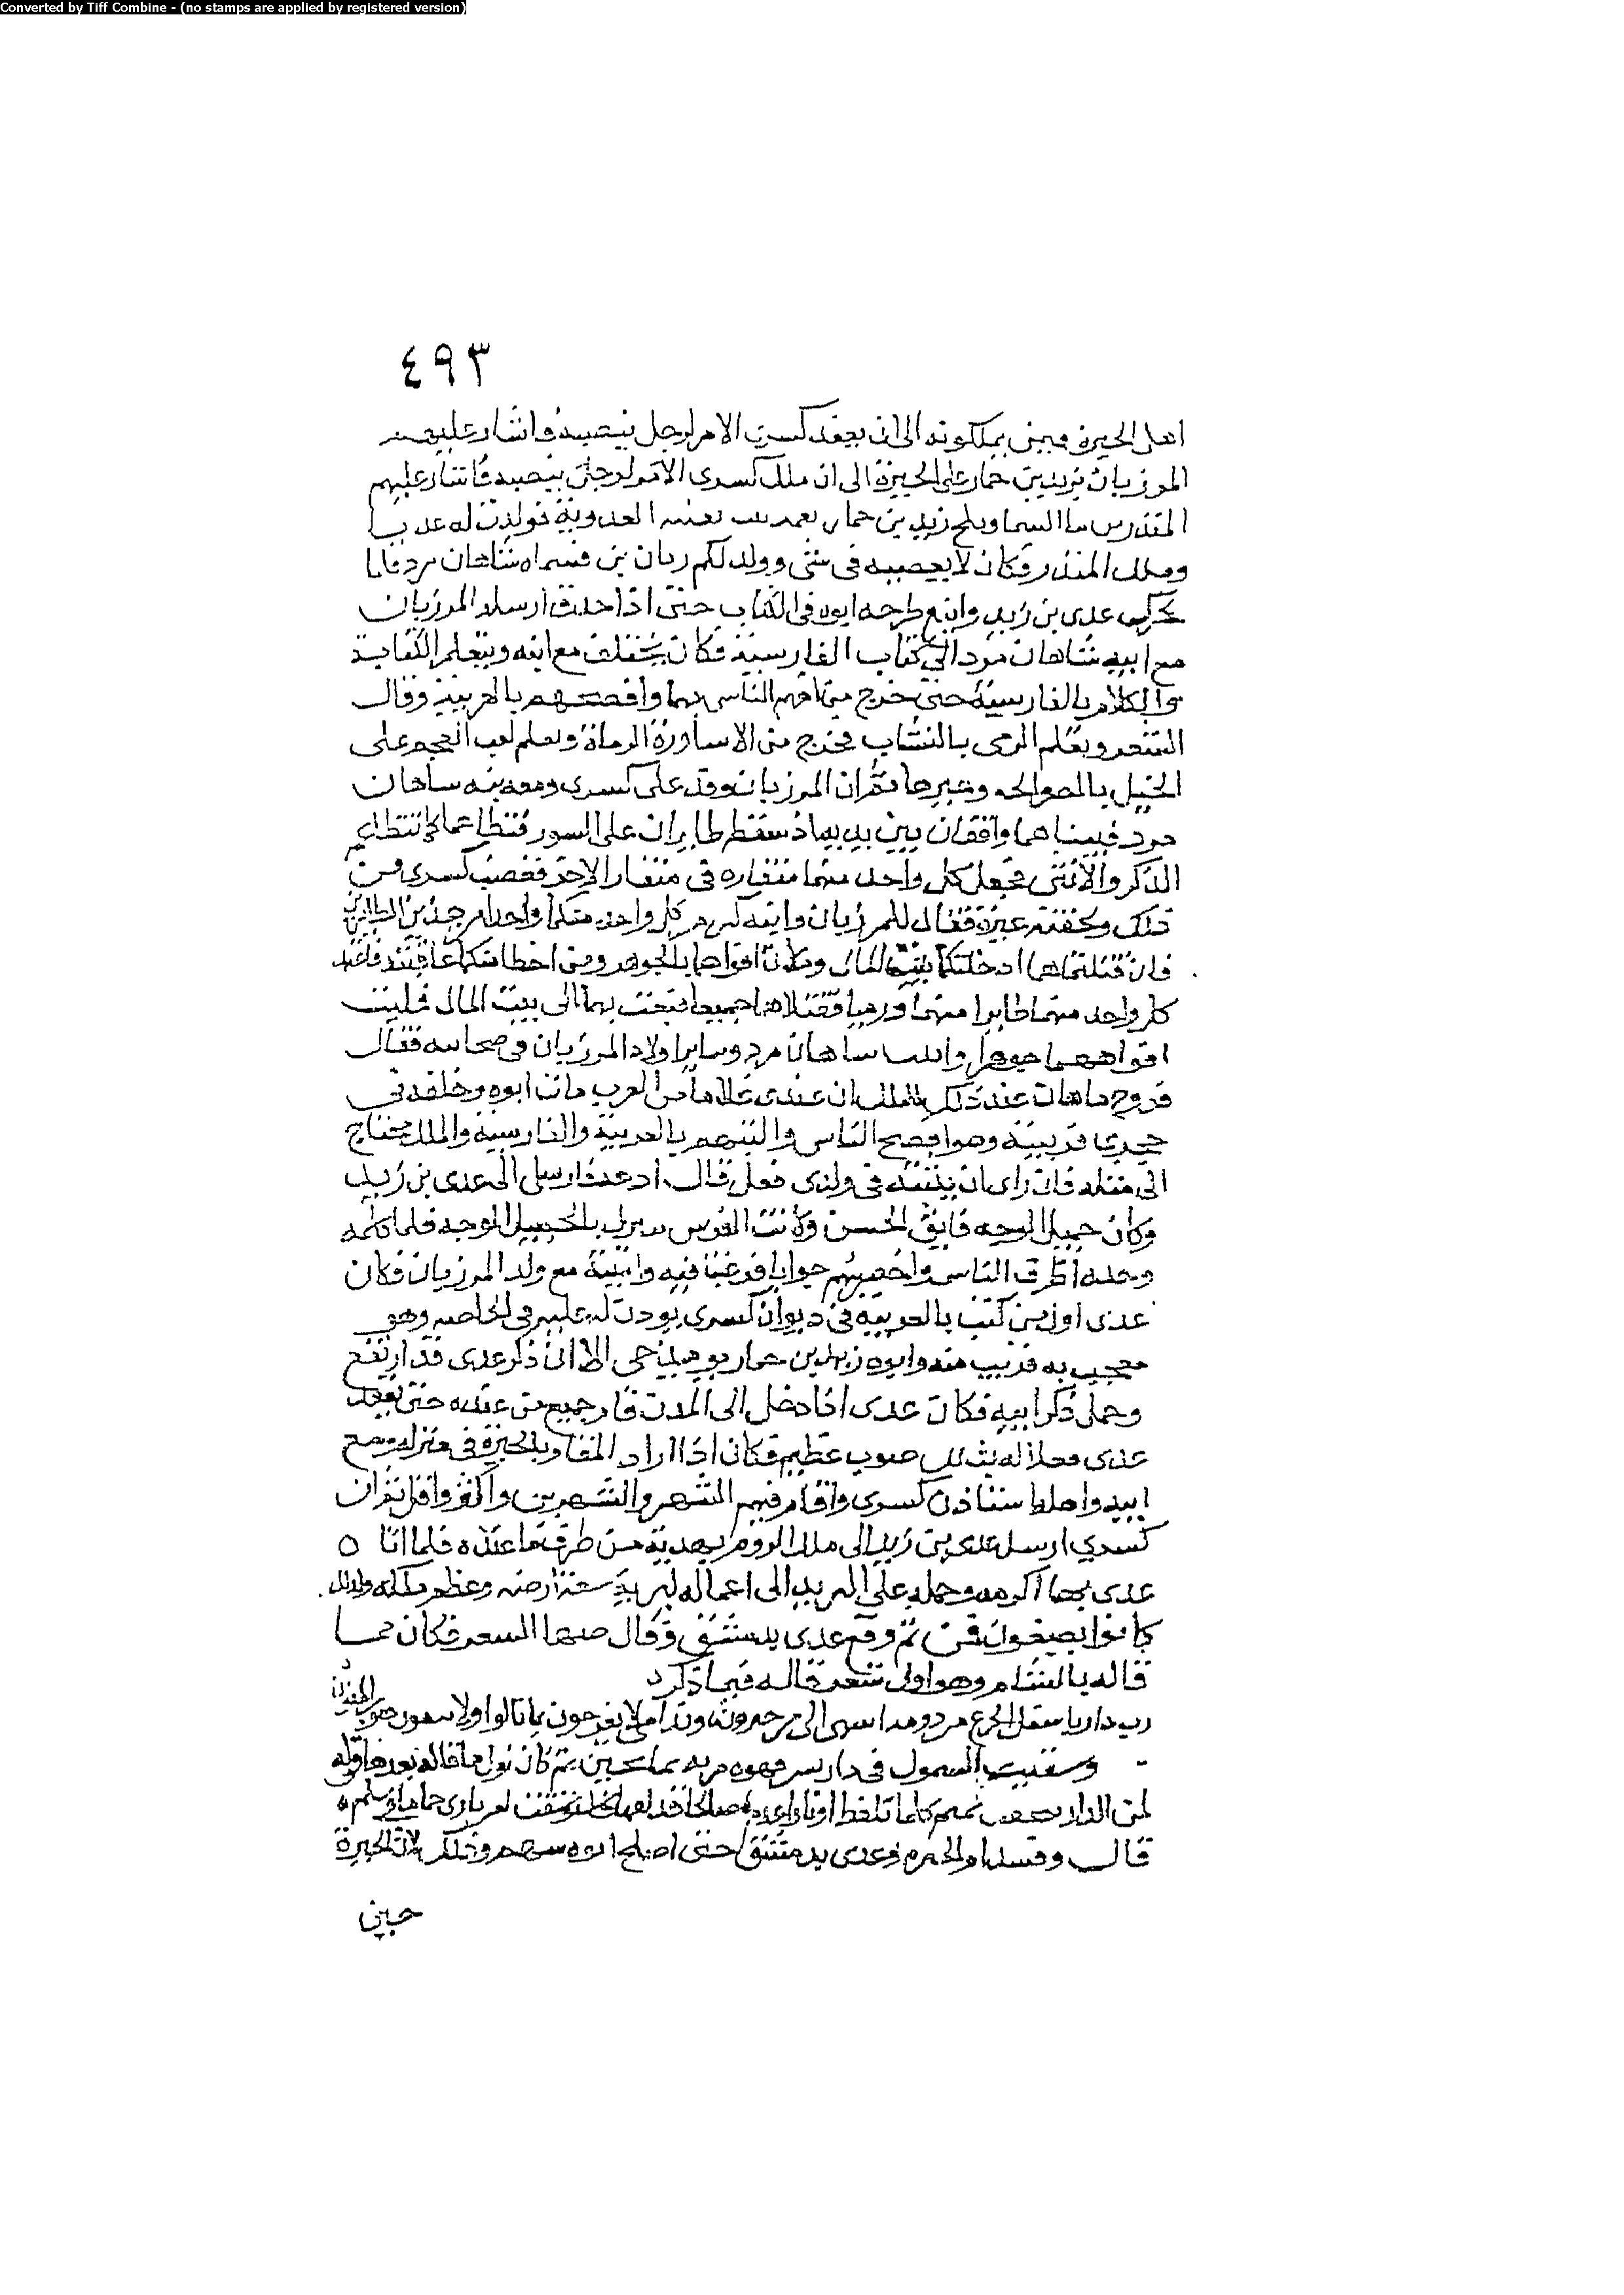 Converted by Tiff Combine - (no stamps are applied by registered version)
٤٩٣
اهل الحيرة فيمن يملكونه الى ان يعقد كسرى الامر لرجل ينصبه فاشار عليهم
المرزبان بزيد بن حمار على الحيرة الى ان ملك كسرى الامر لرجل ينصبه فاشار عليهم
المنذر بن ما السما ونكح زيد بن حمار نعمة بنت العدوية فولدت له عديا
وملك المنذر وكان لا يعصيه في شي وولد للمرزبان بن فسماه شاهان مرد فلما
تحرك عدى بن زيد وايفع طرحه ابوه في الكتاب حتى اذا حذق ارسله المرزبان
مع ابنه شاهان مرد الى كتاب الفارسية فكان يختلف مع ابنه ويتعلم الكتابة
والكلام بالفارسية حتى خرج من افهم الناس بها وافصحهم بالعربية وقال
الشعر وتعلم الرمى بالنشاب فخرج من الاساورة الرماة وتعلم لعب العجم على
الخيل بالصوالجه وغيرها ثم ان المرزبان وفد على كسرى ومعه ابنه شاهان
مرد فبيناهما واقفان بين يديه اذ سقط طايران على السور فتطاعما كما يتطاعم
الذكر والانثى فجعل كل واحد منهما منقاره في منقار الاخر فغضب كسرى من
ذلك ولحقته غيرة فقال للمرزبان وابنه ليرم كل واحد منكما واحدا من هذين الطايرين
فان قتلتماهما ادخلتكما بيت المال وملات افواهكما بالجوهر ومن اخطا منكما عاقبته فاعتمد
كل واحد منهما طايرا منهما ورميا فقتلاهما جميعا فبعث بهما الى بيت المال فمليت
افواههما جوهرا واثبت شاهان مرد وساير اولاد المرزبان في صحابته فقال
فروخ ماهان عند ذلك للملك ان عندى غلاما من العرب مات ابوه وخلفه في
حجرى فربيته وهو افصح الناس واكتبهم بالعربية والفارسية والملك محتاج
الى مثله فان راى ان يثبته في ولدى فعل قال ادعه فارسل الى عدى بن زيد
وكان جميل الوجه فايق الحسن وكانت الفرس تتبرك بالجميل الوجه فلما كلمه
وجده اظرف الناس واحضرهم جوابا فرغب فيه واثبته مع ولد المرزبان فكان
عدى اول من كتب بالعربيه في ديوان كسرى يوذن له عليه في الخاصه وهو
معجب به قريب منه وابوه زيد بن حمار يوميذ حى الا ان ذكر عدى قد ارتفع
وخمل ذكر ابيه فكان عدى اذا دخل الى المنذر قام جميع من عنده حتى يقعد
عدى فعلا له بذلك صيت عظيم فكان اذا اراد المقام بالحيرة في منزله ومع
ابيه واهله استاذن كسرى واقام فيهم الشهر والشهرين واكثر واقل ثم ان
كسرى ارسل عدى بن زيد الى ملك الروم بهدية من طرف ما عنده فلما اتا ه
عدى بها اكرمه وحمله على البريد الى اعماله ليريه سعة ارضه وعظم ملكه وكذلك
كانوا يصنعون فمن ثم وقع عدى بدمشق وقال فيها الشعر فكان مما
قاله بالشام وهو اول شعر قاله فيما ذكر
رب دار باسفل الجزع من دومه اشهى الى من جيرون وندامى لا يفرحون بما نالوا ولا يرهبون صرف المنون
وسقيت الشمول في دار بشر قهوة مرة بماء سخين ثم كان اول ما قاله بعدها قوله
لمن الدار
قال وفسد امر الحيرة وعدى بدمشق حتى اصلح ابوه بينهم وذلك لان اهل الحيرة
حين